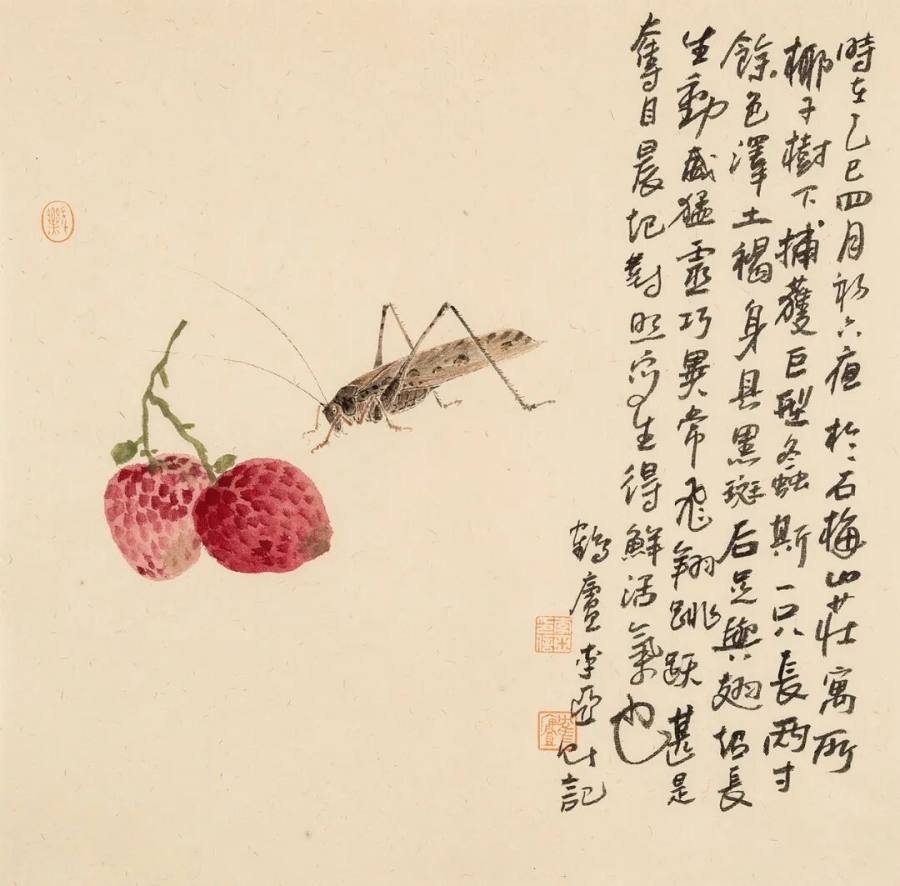 時在乙巳四月初六夜於石梅山莊寓所
椰子樹下捕獲巨型螽斯一只長兩寸
餘色澤土褐身具黑斑后足與翅均長
生動威猛靈巧異常飛翔跳跃甚是
奪目晨起對照寫生得鮮活氣也
鶴廬李亞 記